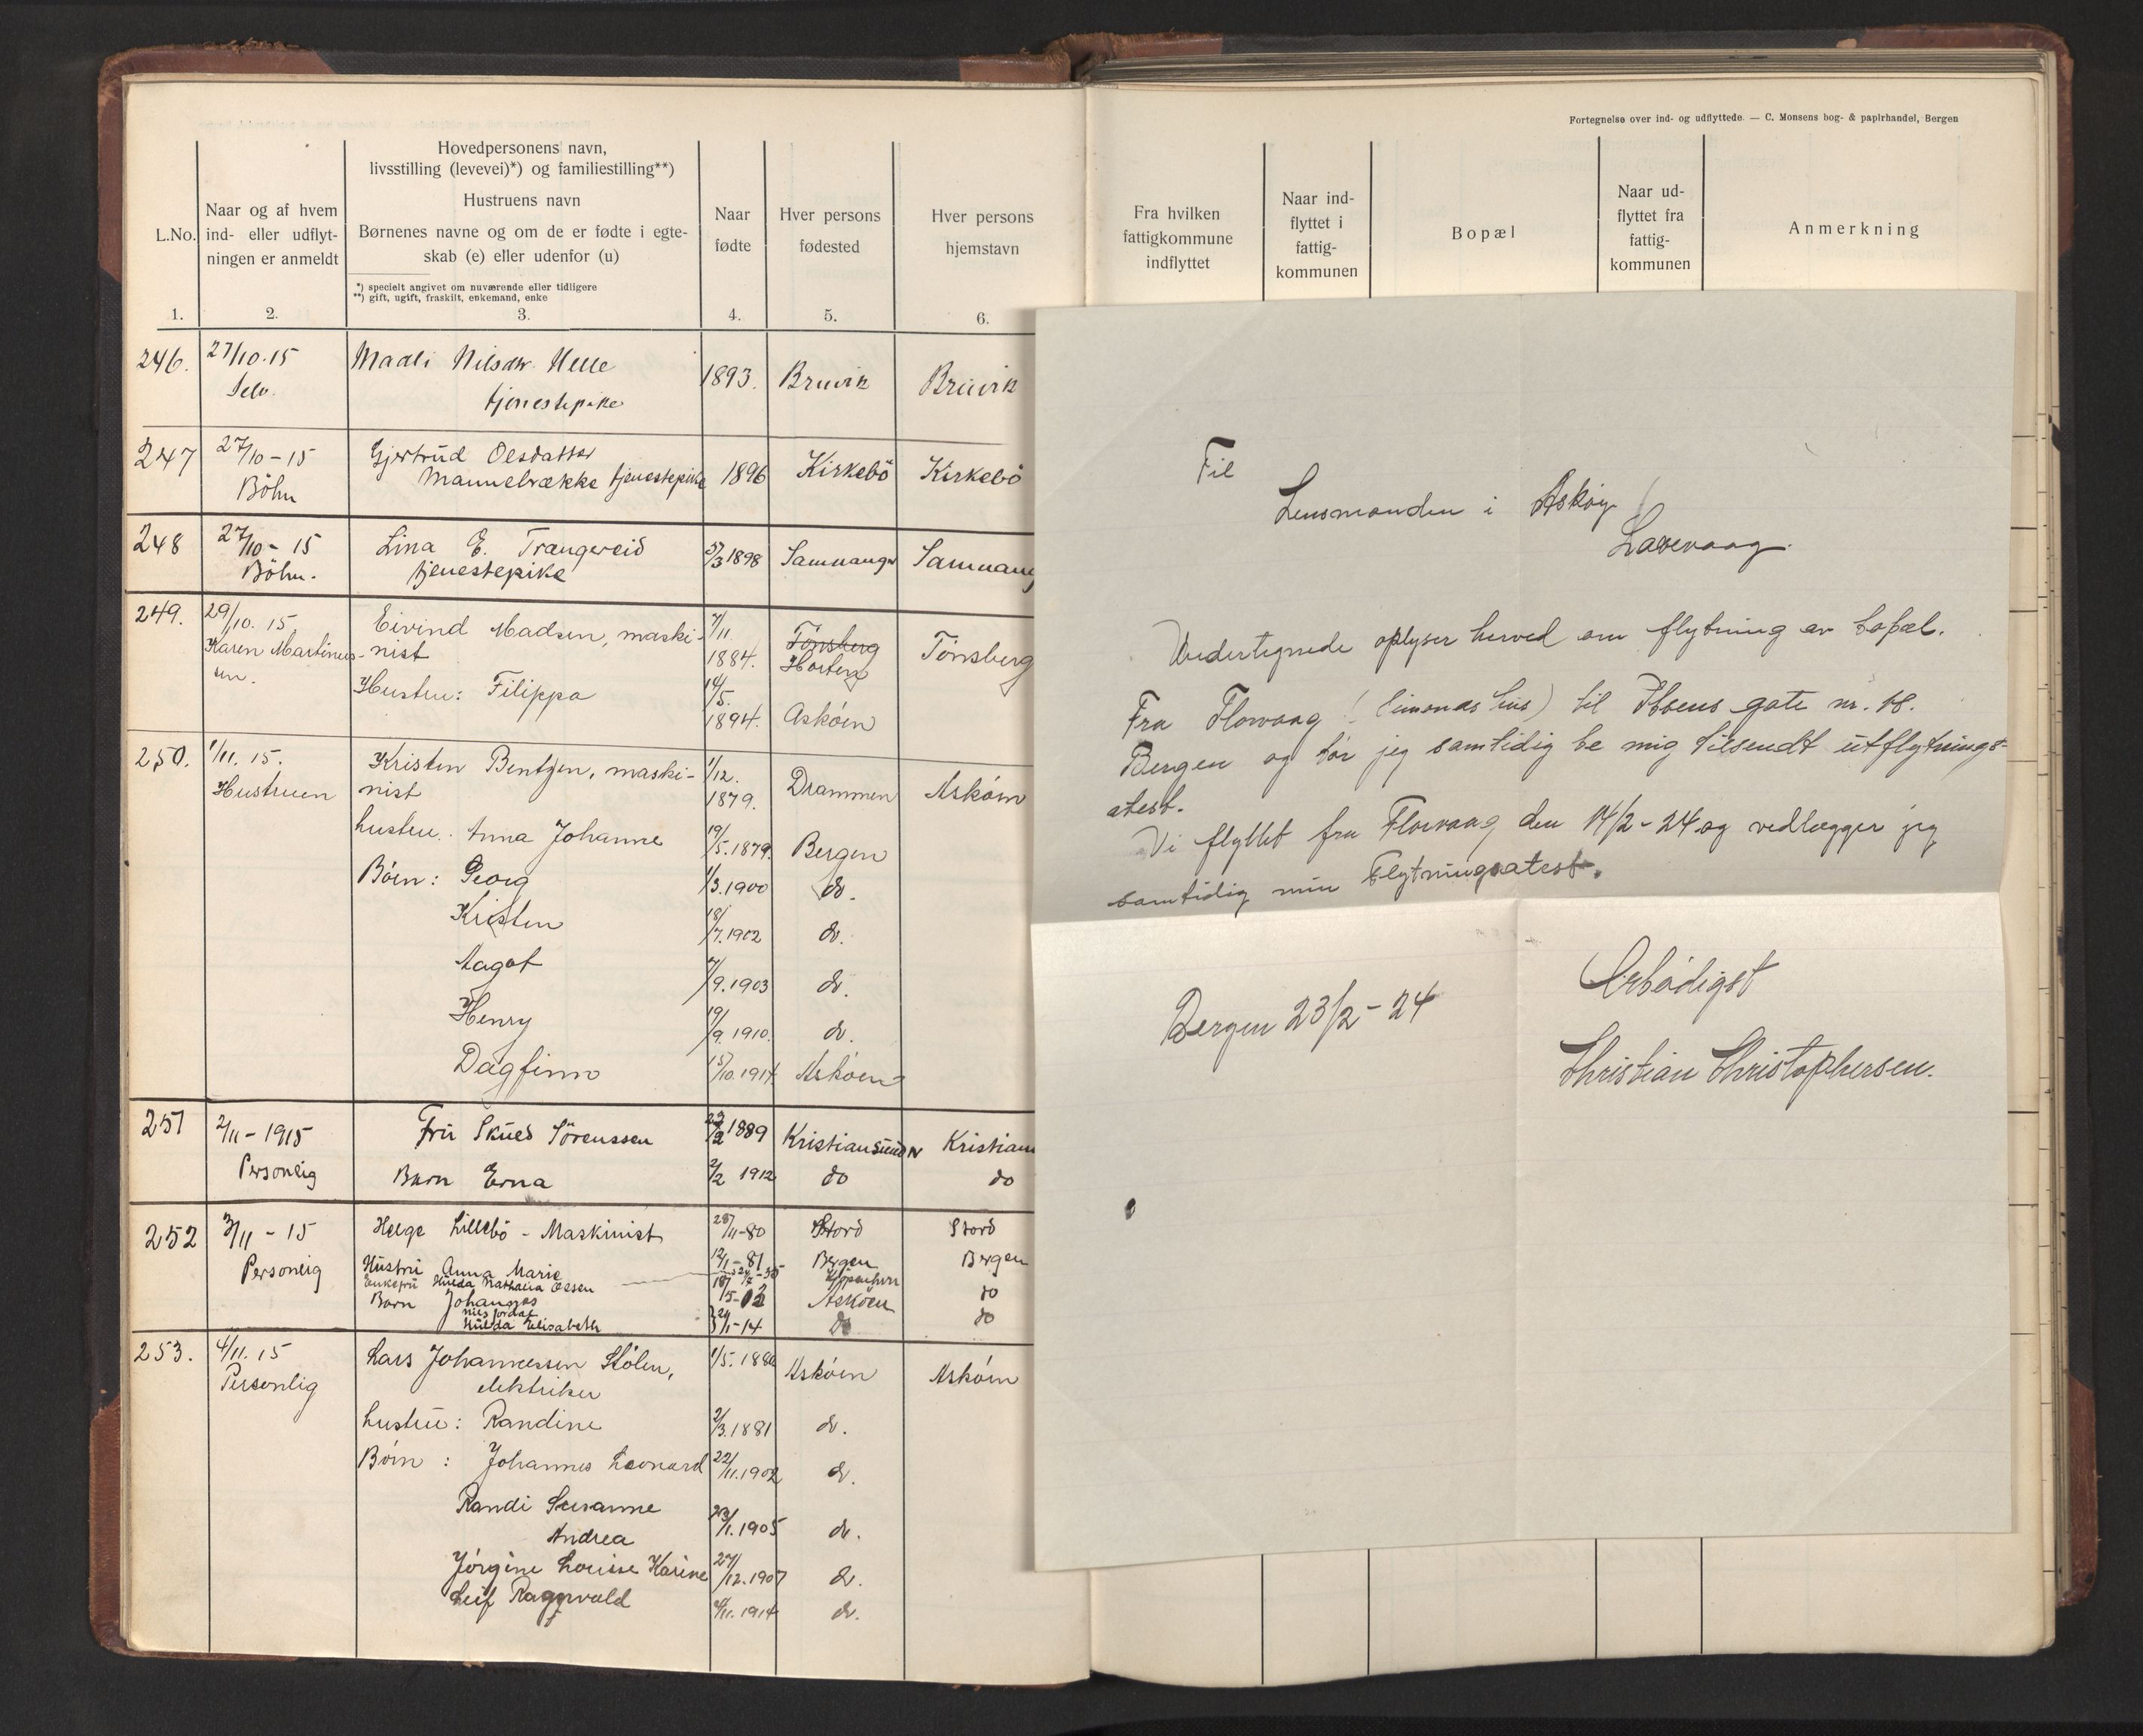 Fortegnelse over ind- og udflyttede. — C. Monsens bog- & papirhandel, Bergen
L.No.
1.
Naar og af hvem
ind- eller udflyt-
ningen er anmeldt
2.
Hovedpersonens navn,
livsstilling (levevei)*) og familiestilling**)
Hustruens navn
Børnenes navne og om de er fødte i egte-
skab (e) eller udenfor (u)
*) specielt angivet om nuværende eller tidligere
**) gift, ugift, fraskilt, enkemand, enke
3.
Naar
fødte
4.
Hver persons
fødested
5.
Hver persons
hjemstavn
6.
Fra hvilken
fattigkommune
indflyttet
Naar ind-
flyttet i
fattig-
kommunen
Bopæl
Naar ud-
flyttet fra
fattig-
kommunen
Anmerkning
246. 27/10.15 Madli Nilsdtr. Helle 1893. Bruvik Bruvik
Selv. tjenestepike
247 27/10-15 Gjertrud Olsdatter 1896 Kirkebö Kirkebö
Böhn Mannebrække tjenestepike
248 27/10-15 Lina E. Trængereid 5/3 1898 Samnanger Samnang
Böhn. tjenestepike
249. 29/10.15 Eivind Madsen, maski- 7/11 Tönsberg Tönsberg
Karen Martinus- nist 1884. Horten
sen. Hustru: Filippa 14/5. 1894. Askøen
250. 1/11.15. Kristen Bentzen, maski- 1/12. Drammen Askøen
Hustruen nist 1879.
hustru. Anna Johanne 19/5.1879. Bergen
Børn: Georg 1/3.1900 do.
Kristen 18/7.1902 do.
Aagot 7/9.1903 do.
Henry 19/9.1910. do.
Dagfinn 15/10.1914 Askøen
251 2/11-1915 Fru Skues Sörenssen 22/2 1889 Kristiansund N Kristian
Personlig Barn Erna 2/2 1912 do do
252 3/11-15 Helge Lillebö - Maskinist 28/11-80 Stord Stord
Personlig Hustru Anna Marie 12/1-81 Bergen Bergen
Enkefru Hulda Nathalia Olsen do
Barn Johannes Askøen do
Nils Jordal
Hulda Elisabeth do
253. 4/11.15 Lars Johannessen Stølen, Askøen Askøen
Personlig elektriker
hustru: Randine 2/3.1881 do.
Børn: Johannes Leonard 22/11.1902 do.
Randi Susanne
Andrea 23/1.1905 do.
Jørgine Louise Karine 27/12.1907 do.
Leif Ragnvald 4/11.1914 do.
Til
Lensmanden i Askøy
Laxevaag.
Undertegnede oplyser herved om flytning av bopæl.
Fra Florvaag (Simonas hus) til Ibsens gate nr. 18.
Bergen og tør jeg samtidig be mig tilsendt utflytnings-
atest.
Vi flyttet fra Florvaag den 14/2-24 og vedlægger jeg
samtidig min flytningsatest.
Ærbødigst
Bergen 23/2-24
Christian Christophersen.